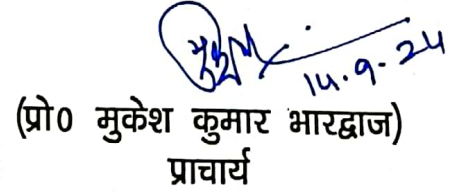 14.9.24
(प्रो0 मुकेश कुमार भारद्वाज)
प्राचार्य